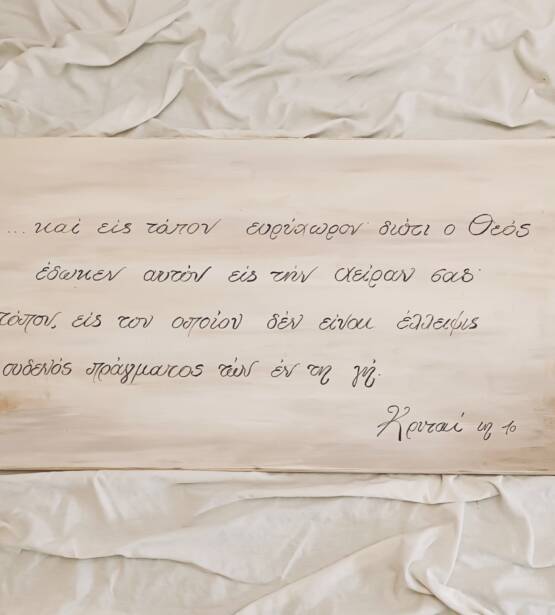 ... και εις τόπον ευρύχωρον· διότι ο Θεός
έδωκεν αυτόν εις την χείραν σας·
τόπον, εις τον οποίον δέν είναι έλλειψις
ουδενός πράγματος τών έν τη γή.
Κριταί ιη 10